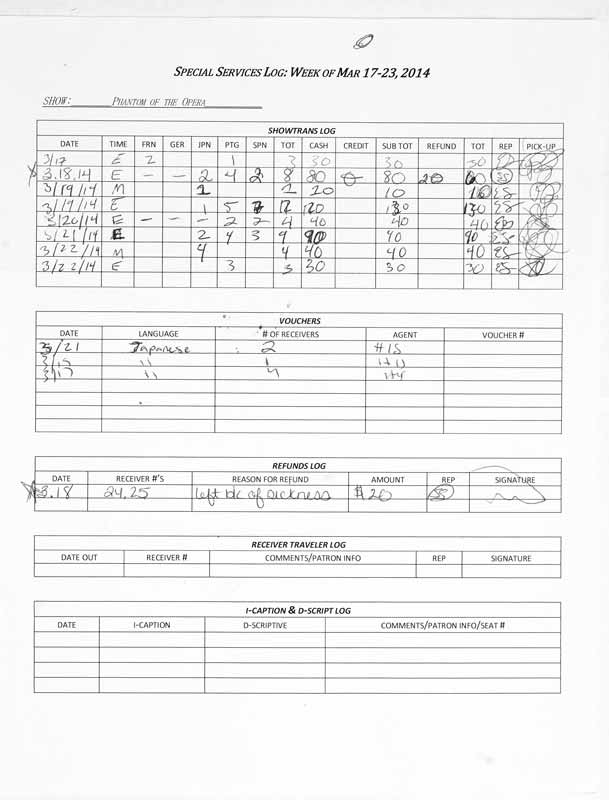 SPECIAL SERVICES LOG: WEEK OF MAR 17-23, 2014
SHOW: PHANTOM OF THE OPERA
SHOWTRANS LOG
DATE TIME FRN GER JPN PTG SPN TOT CASH CREDIT SUB TOT REFUND TOT REP PICK-UP
3/17 E 2 1 3 30 30 30
3.18.14 E - - 2 4 2 8 80 0 80 20 60 ES
3/19/14 M 1 1 10 10 10 ES
3/19/14 E 1 5 130 130 ES
3/20/14 E - - - 2 2 4 40 40 40
3/21/14 E 2 4 3 9 90 90 90 ES
3/22/14 M 4 4 40 40 40 ES
3/22/14 E 3 3 30 30 30 ES
VOUCHERS
DATE LANGUAGE # OF RECEIVERS AGENT VOUCHER #
3/21 Japanese 2 #15
3/15 " 1
" 4
REFUNDS LOG
DATE RECEIVER #'S REASON FOR REFUND AMOUNT REP SIGNATURE
3.18 24,25 left b/c of sickness $20 ES
RECEIVER TRAVELER LOG
DATE OUT RECEIVER # COMMENTS/PATRON INFO REP SIGNATURE
I-CAPTION & D-SCRIPT LOG
DATE I-CAPTION D-SCRIPTIVE COMMENTS/PATRON INFO/SEAT #